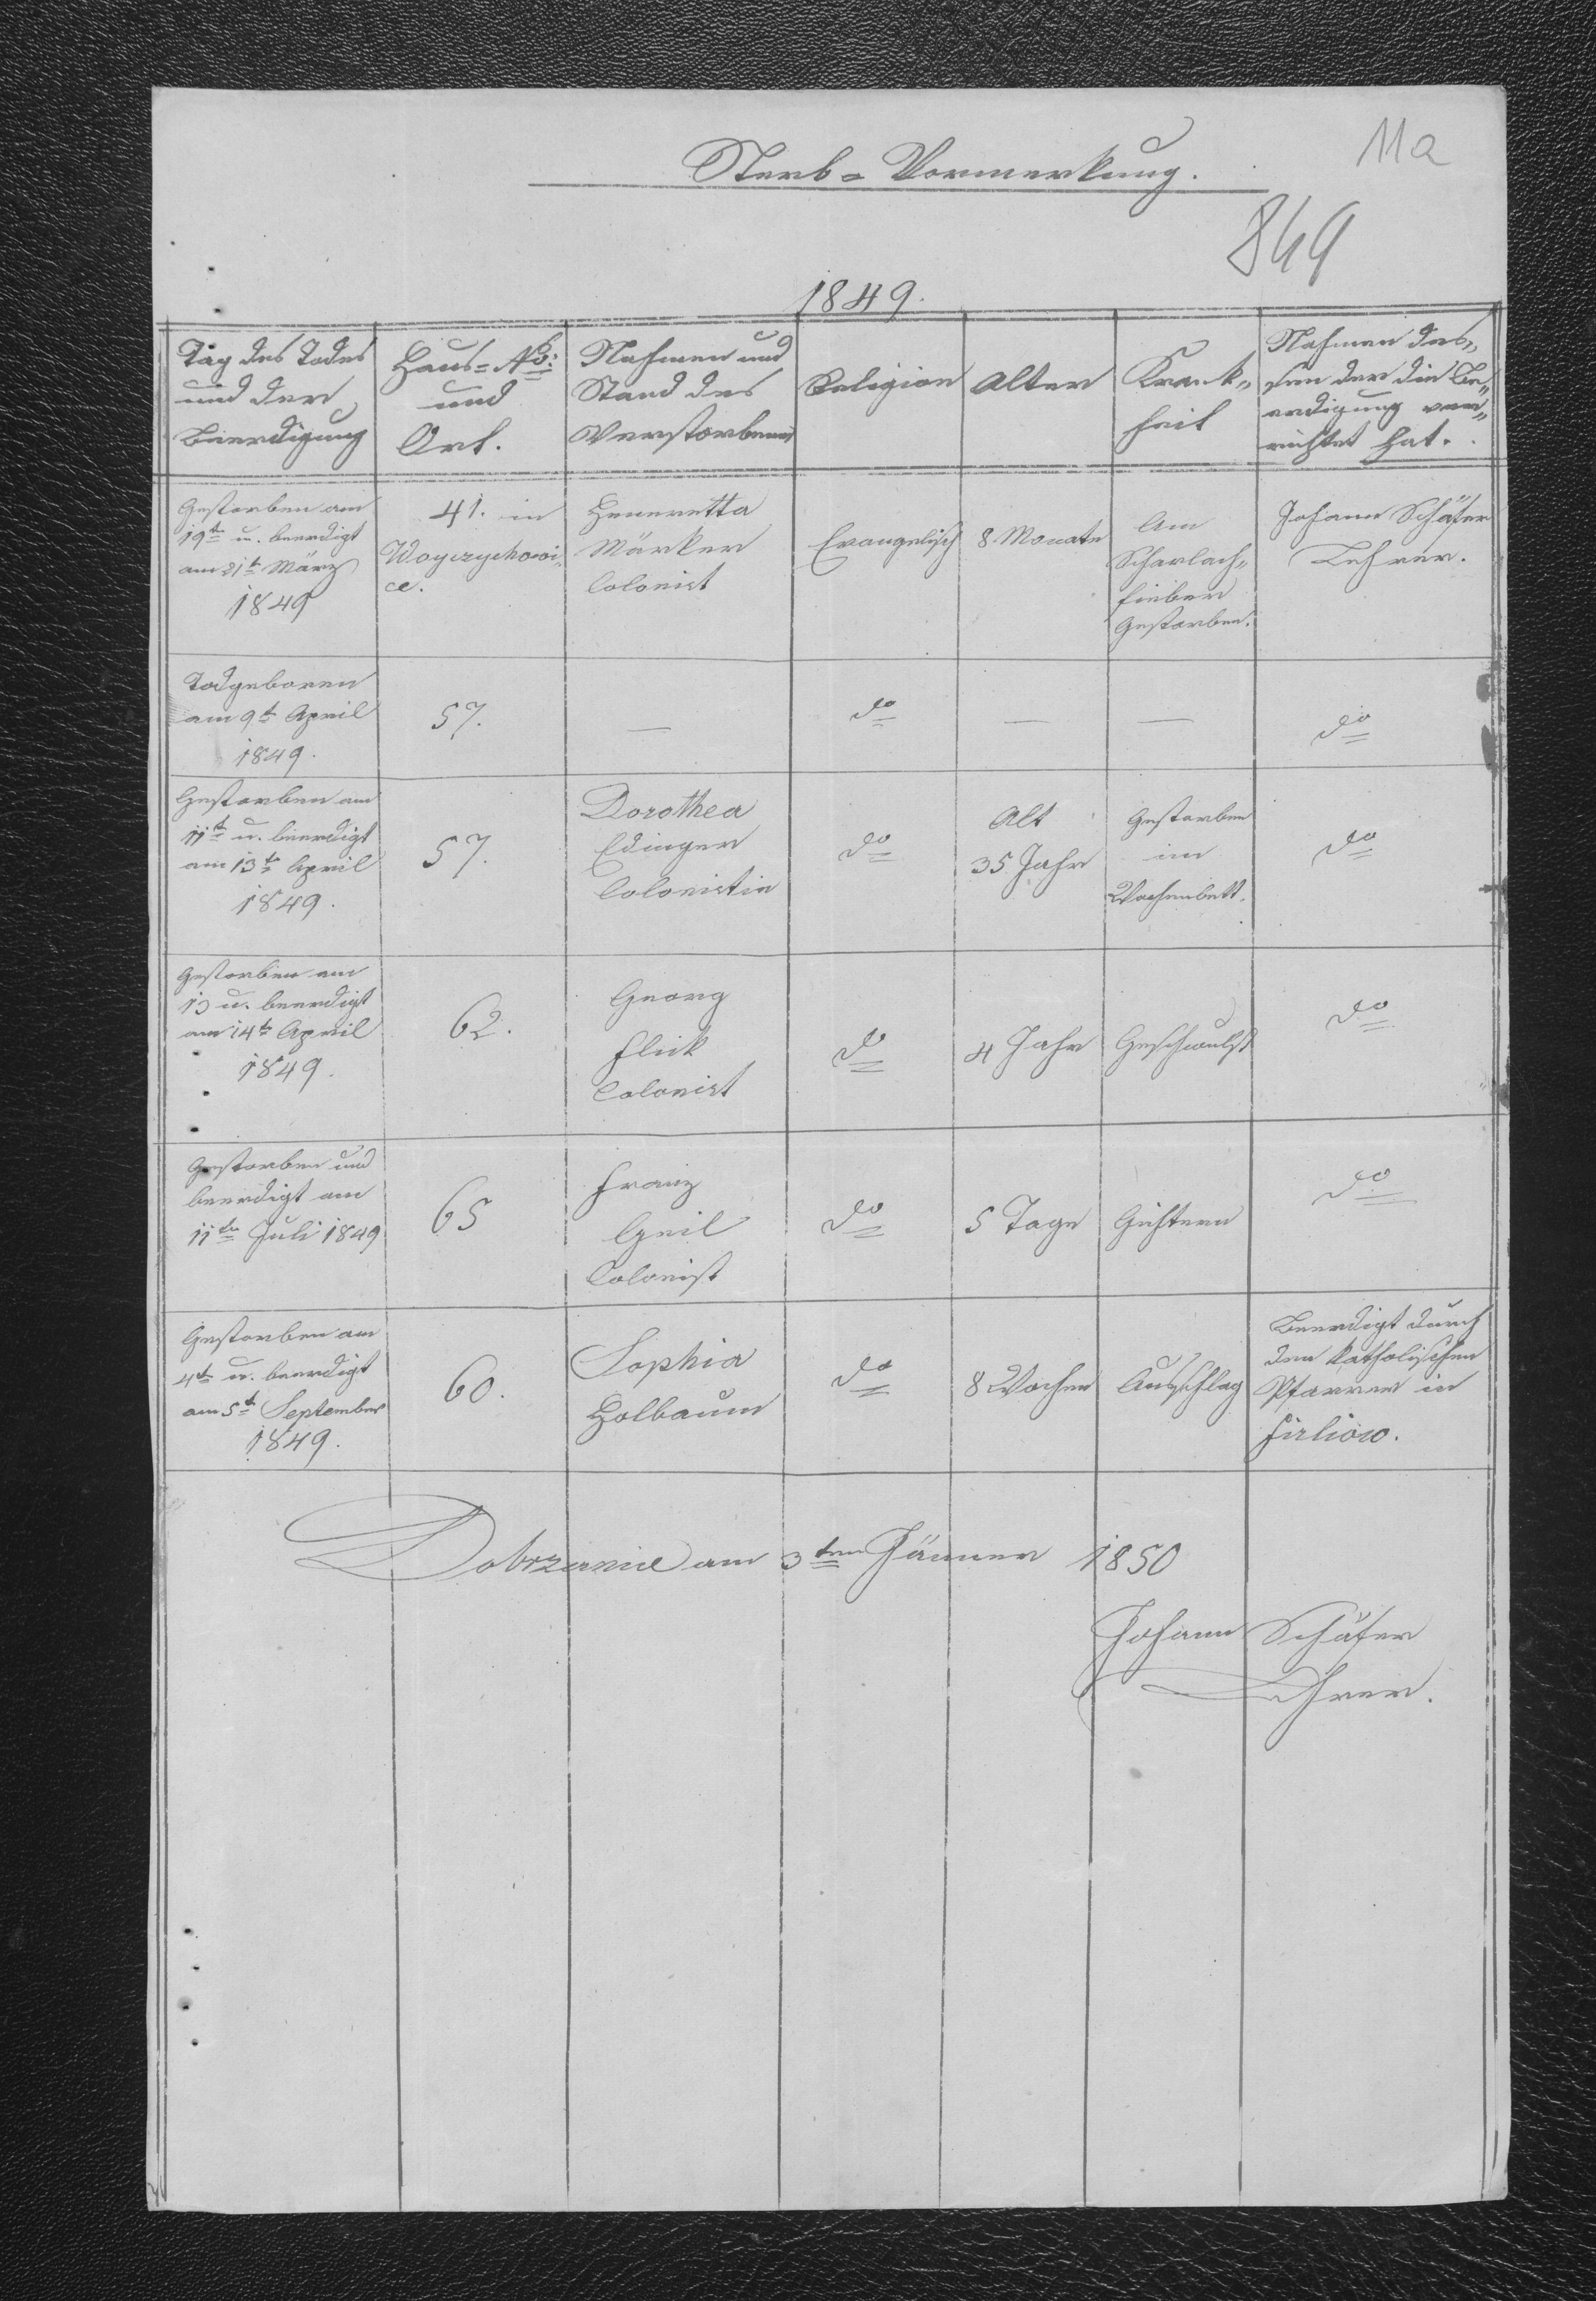 11a
Sterb=Vormerkung.
849
1849.
Tag des Todes
und der
Beerdigung
Haus=No:
und
Ort.
Nahmen und
Stand des
Verstorbenen
Religion
Alter
Krank„
heit
Nahmen des„
sen der die Be„
erdigung ver„
richtet hat.
Gestorben am
19t u. beerdigt
am 21t März
1849
41. in
Woyczychowi„
ce.
Heneretta
Märker
Colonist
Evangelisch
8. Monate
Am
Scharlach„
fieber
Gestorben.
Johann Schäfer
Lehrer.
Todgeboren
am 9t April
1849.
57.
—
do
—
—
do
Gestorben am
11t u. beerdigt
am 13t April
1849.
57.
Dorothea
Edinger
Colonistin
do
Alt
35 Jahr
Gestorben
im
Wochenbett.
do
Gestorben am
13 u. beerdigt
am 14t April
1849.
62.
Georg
Flick
Colonist
do
4 Jahr
Geschwulst
do
Gestorben und
beerdigt am
11tn Juli 1849
65
Franz
Geil
Colonist
do
5 Tage
Gichtern
do
Gestorben am
4t u. beerdigt
am 5t September
1849.
60.
Sophia
Holbaum
do
8 Wochen
Ausschlag
Beerdigt durch
den katholischen
Pfarrer in
Firliow.
Dobrzanice am 3ten Jänner 1850
Johann Schäfer
Lehrer.